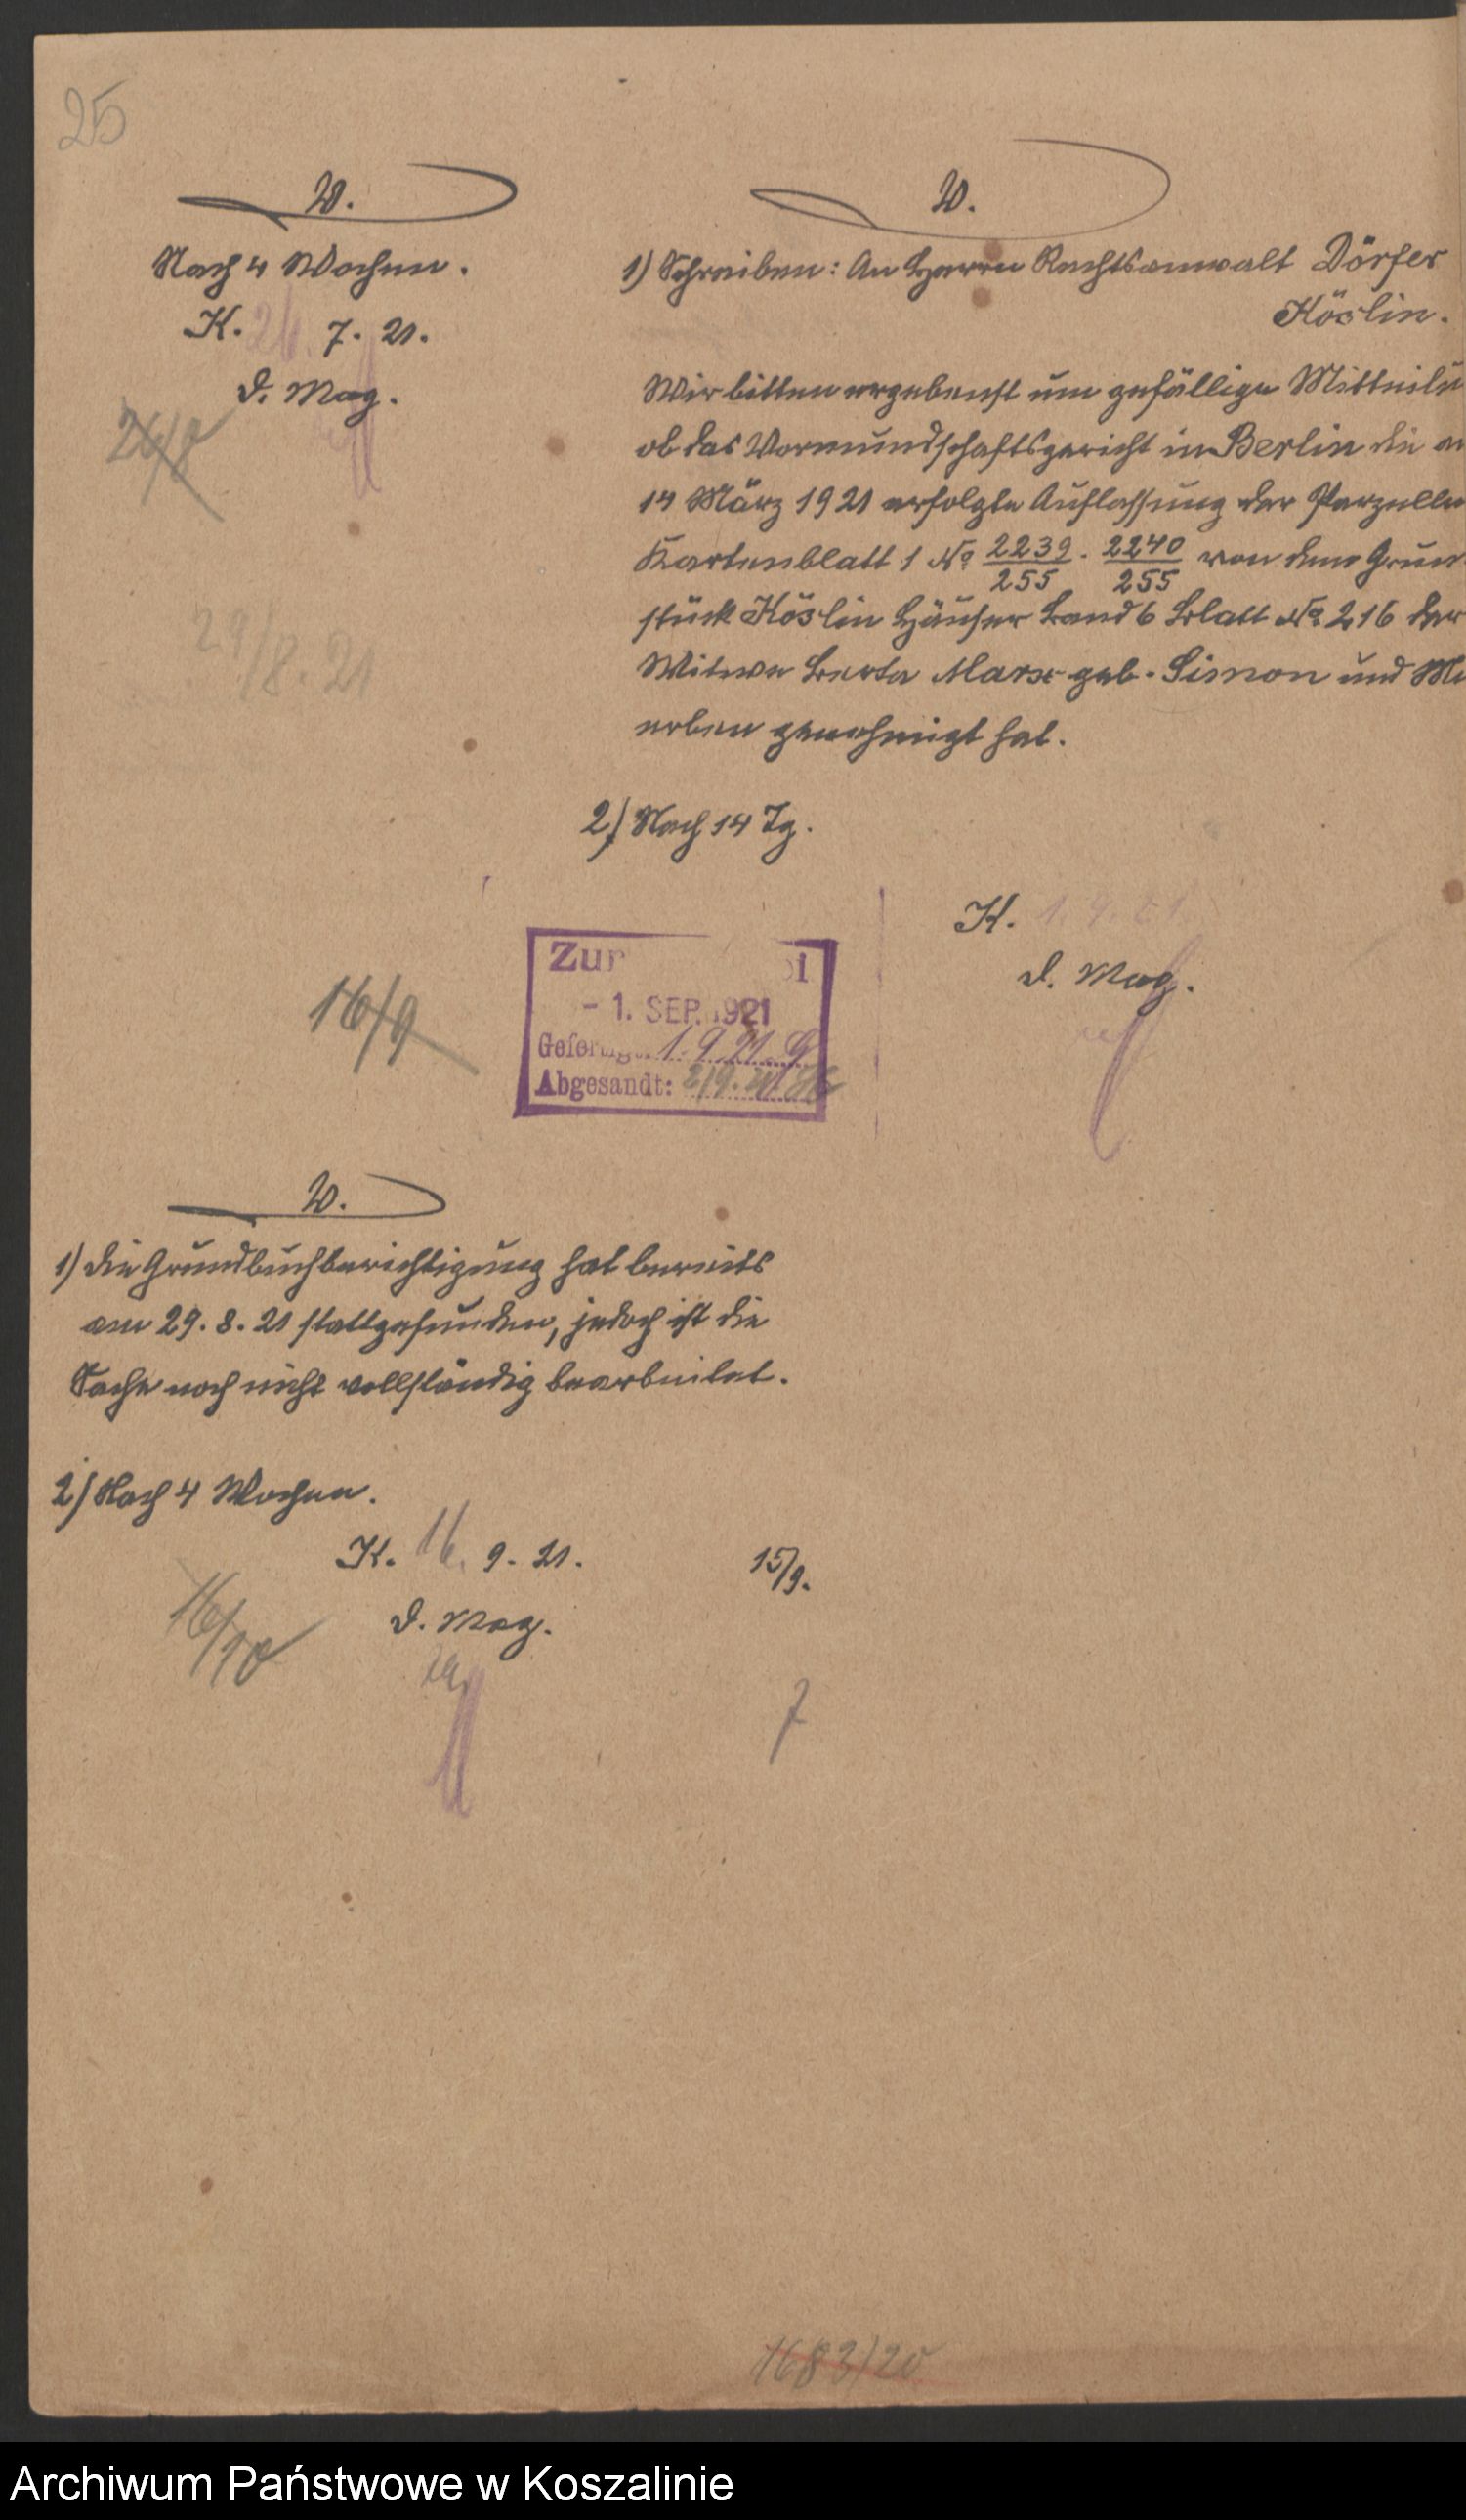 25
V.
Nach 4 Wochen.
K. 26. 7. 21.
D. Mag.
26/8
29/8. 21
V.
1) Schreiben: An Herrn Rechtsanwalt Dörfer
Köslin.
Wir bitten ergebenst um gefällige Mitteilu
ob das Vormundschaftsgericht in Berlin die a
14 März 1921 erfolgte Auflassung der Parzelle
Kartenblatt 1 No 2239/255 . 2240/255 von dem Grun
stück Köslin Häuser Band 6 Blatt No 216 der
Witwe Berta Marx geb. Simon und Mi
erben genehmigt hat.
2) Nach 14 Tg.
K. 1. 9. 21.
D. Mag.
16/9
Zur
- 1. SEP. 1921
Gefertigt: 1. 9. 21.
Abgesandt: 2/9. 21
V.
1) Die Grundbuchberichtigung hat bereits
am 29. 8. 21 stattgefunden, jedoch ist die
Sache noch nicht vollständig bearbeitet.
2) Nach 4 Wochen.
K. 16. 9. 21.
15/9.
D. Mag.
16/10
7
1683/20
Archiwum Państwowe w Koszalinie